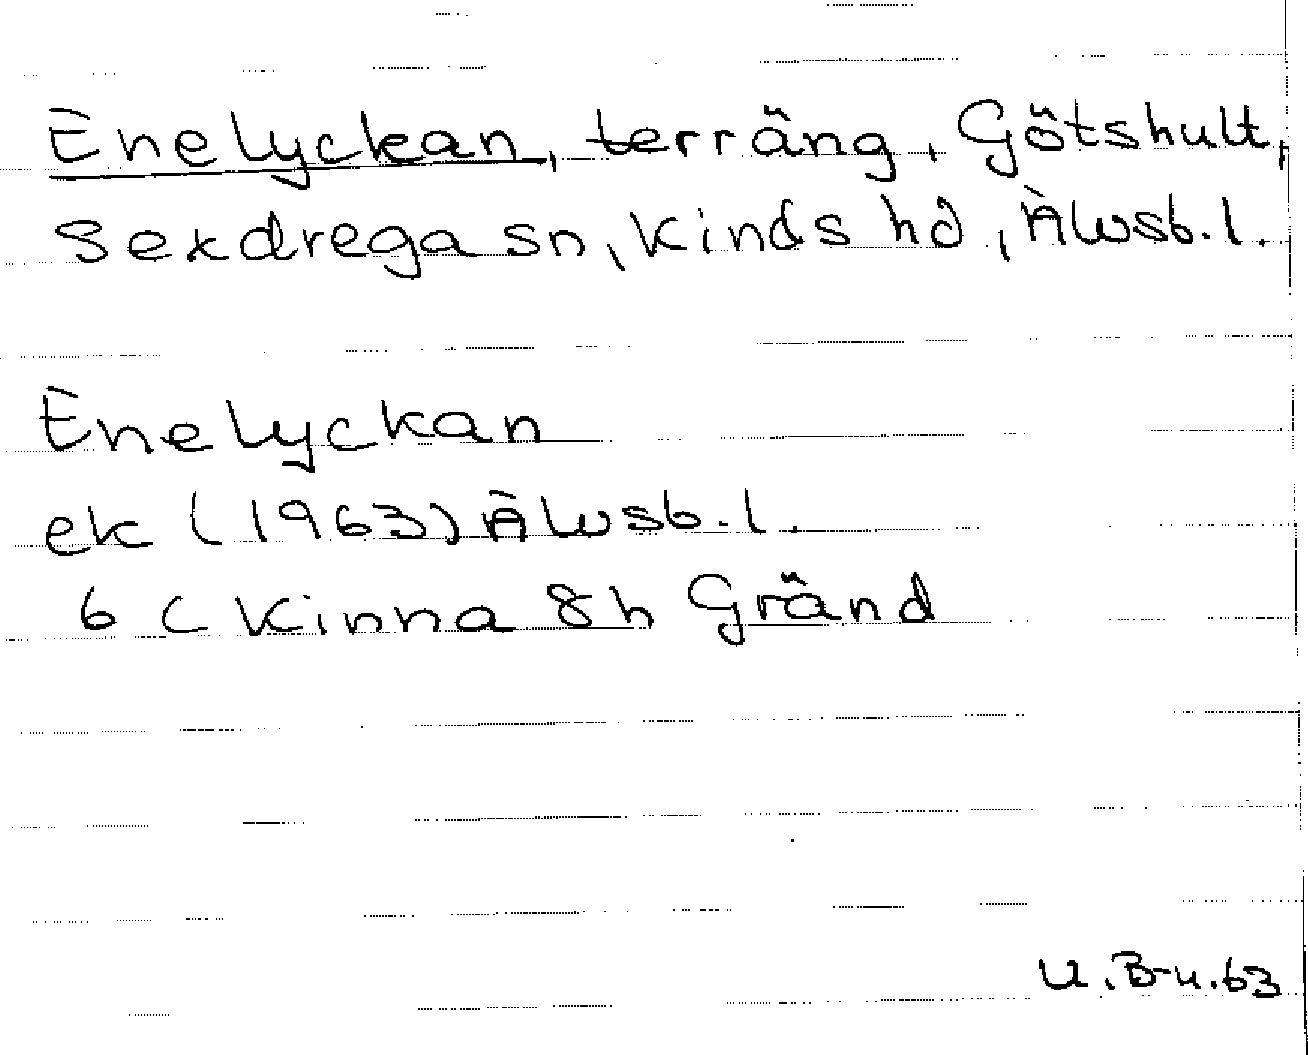 Enelyckan, terräng, Götshult,
Sexdrega sn, Kinds hd, Älvsb. l.
Enelyckan
ek (1963) Älvsb. l.
6 C Kinna 8h Gränd
U. B-n. 63